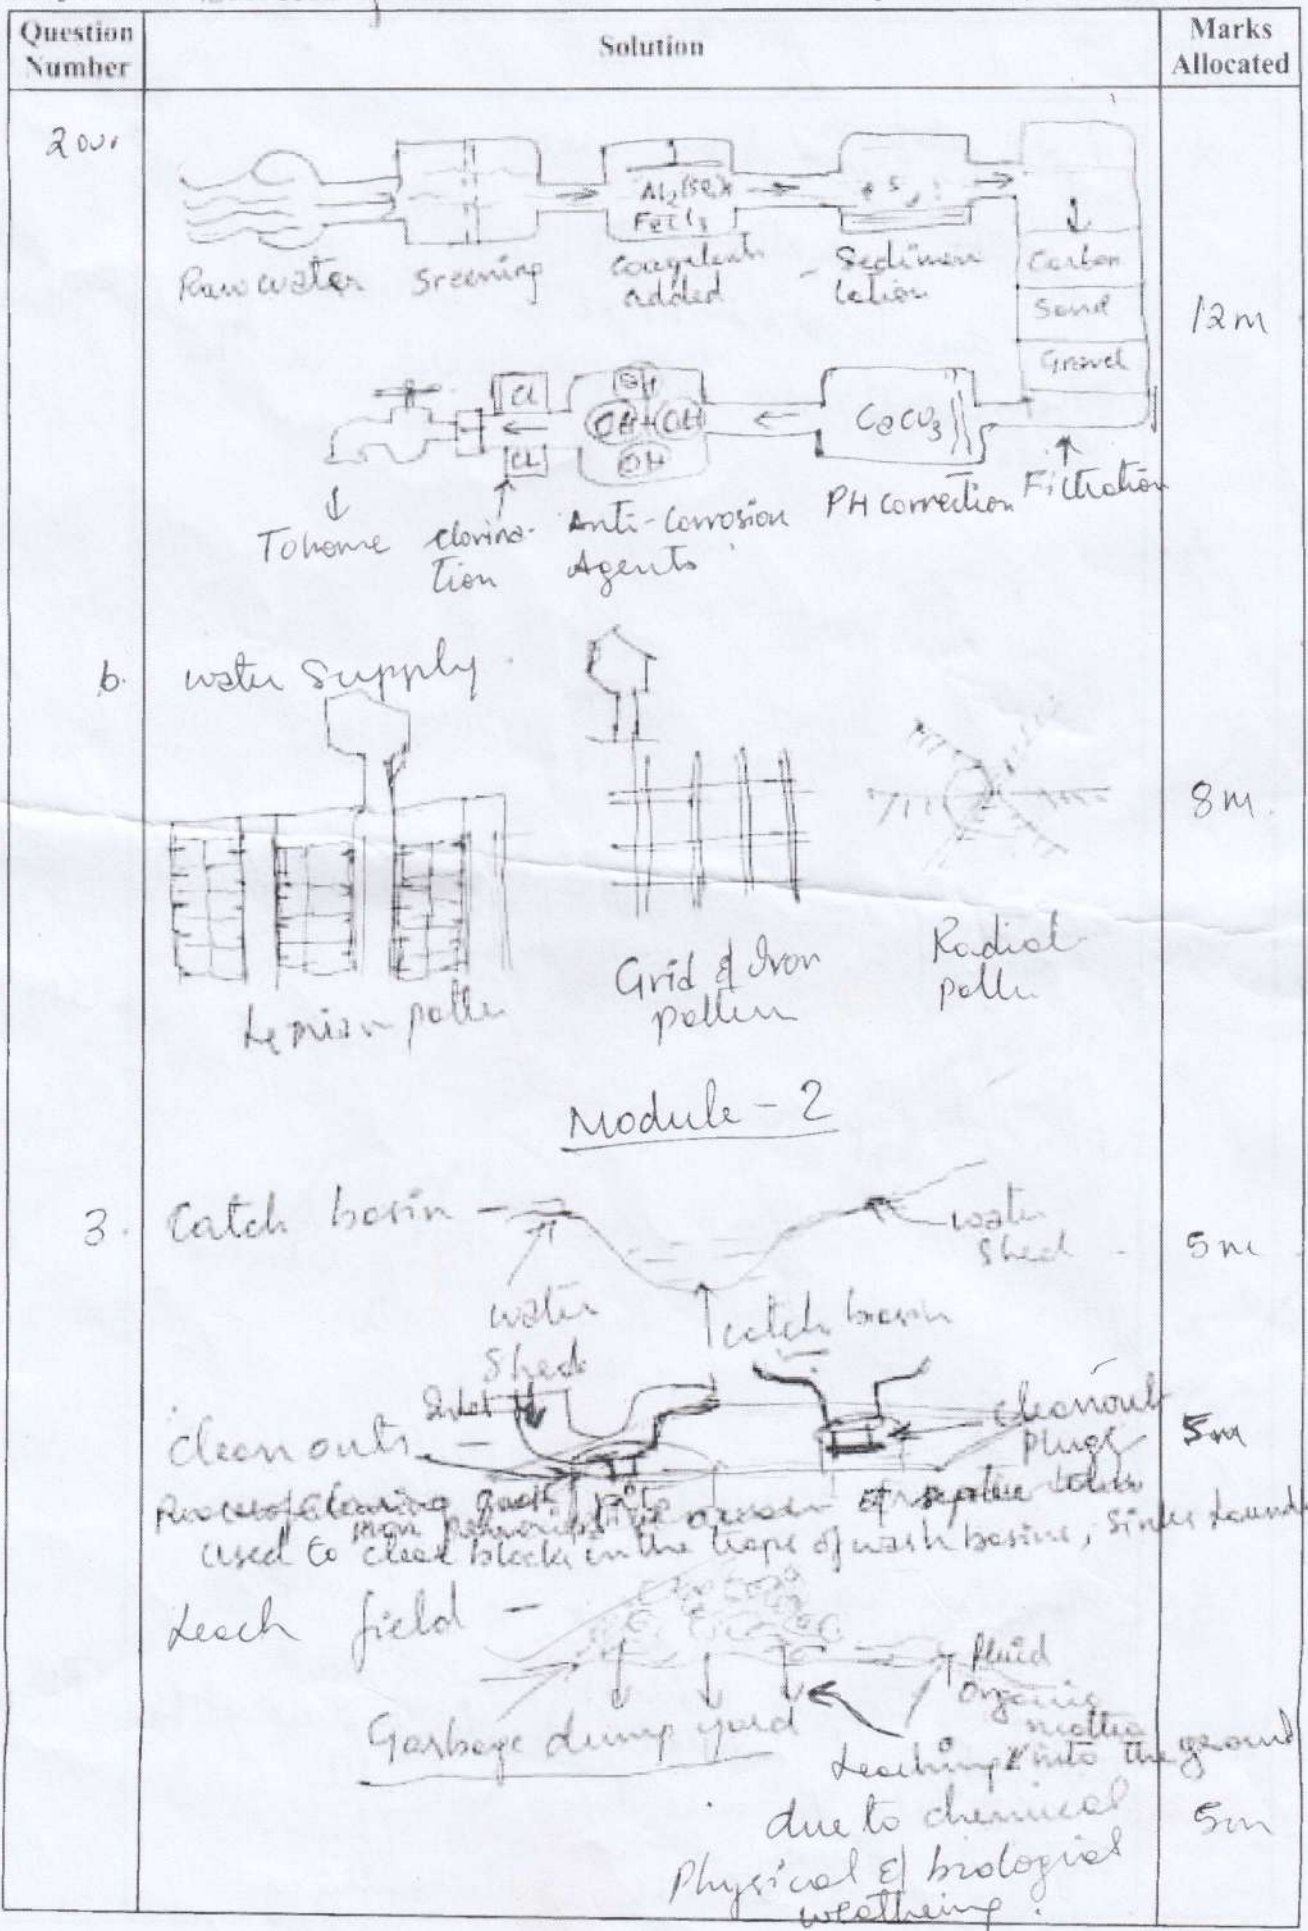 Question
Number
Solution
Marks
Allocated
Al2(SO4)3
FeCl3
Carbon
Sand
Gravel
Raw water
Sreening
Coagulents
added
Sedimen
tation
12m
Cl
Cl
OH
OH
OH
OH
CaCO3
To home
clorina-
tion
Anti-Corrosion
Agents
PH Correction
Filtration
b.
water Supply
8m.
Grid & Iron
pattern
Radial
Module - 2
3.
Catch basin -
water
shed
5m
water
Shed
catch basin
Inlet
Clean outs -
cleanout
plugs
5m
used to clear blocks in the traps of wash basins, Sinks
Leach field -
Fluid
Organic
matter
Garbage dump yard
Leaching into the ground
due to chemical
Physical & biological
weathering.
5m